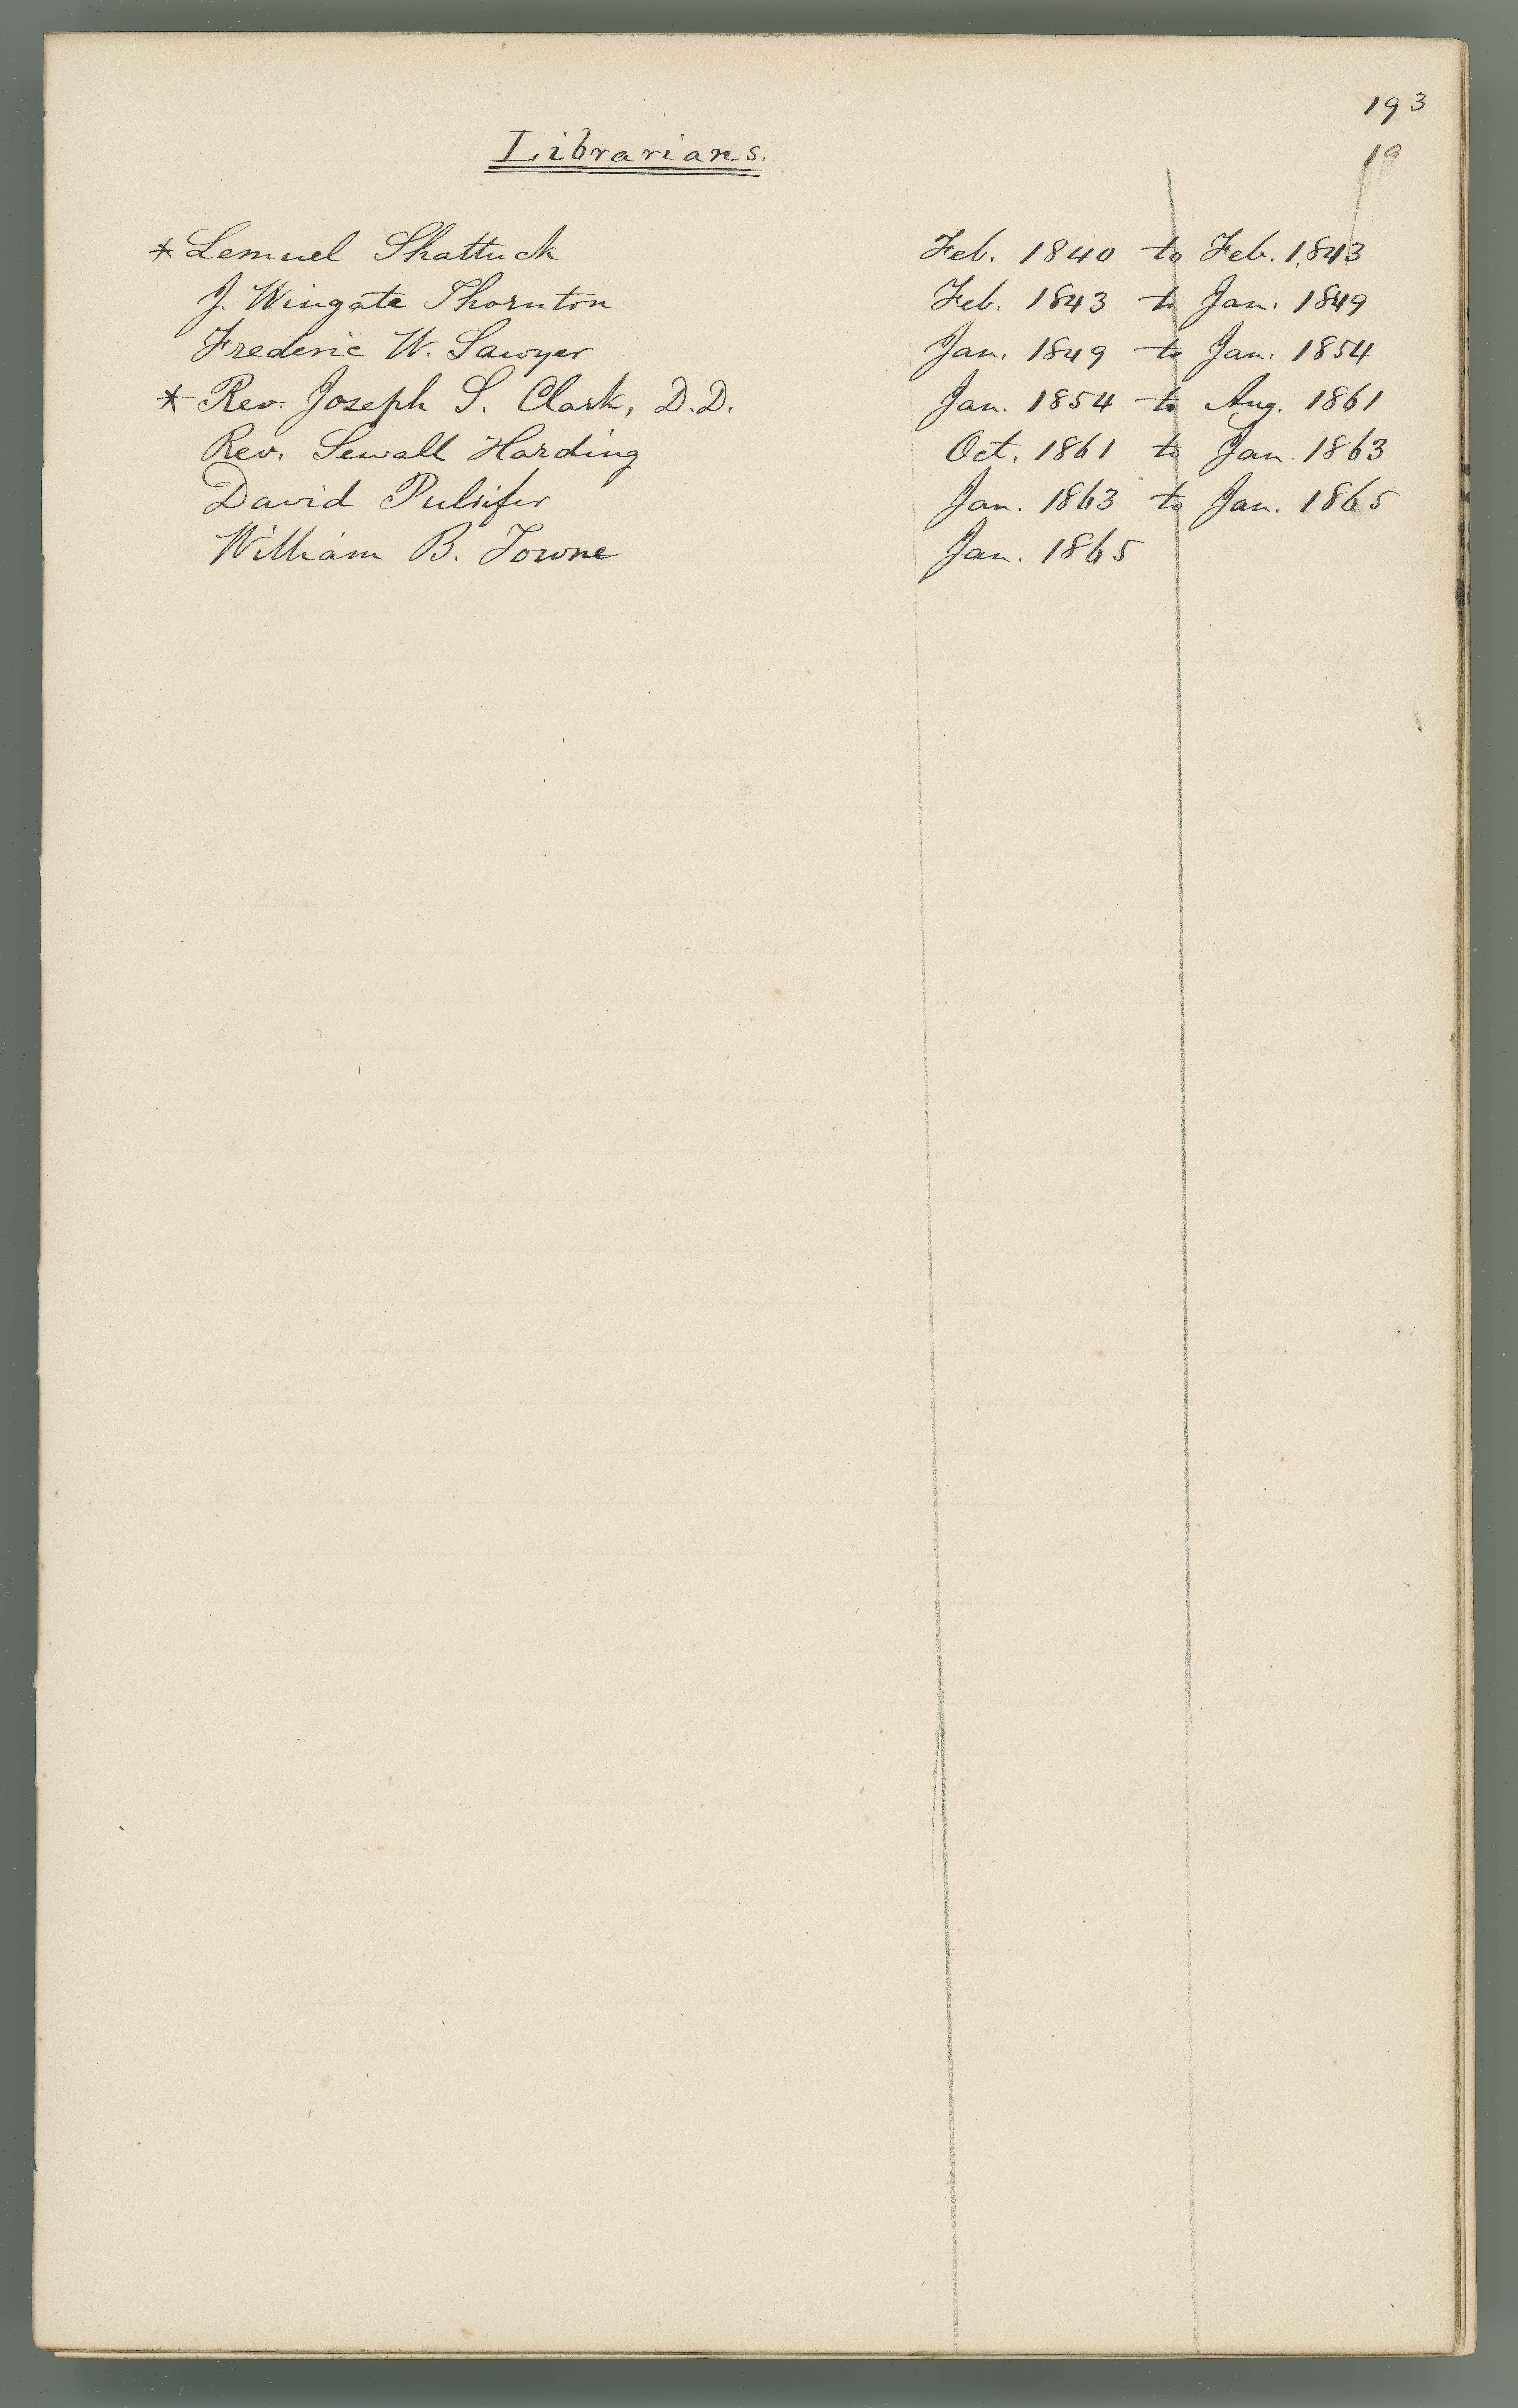 193
19
Librarians.
* Lemuel Shattuck Feb. 1840 to Feb. 1843
J. Wingate Thornton Feb. 1843 to Jan. 1849
Frederic W. Sawyer Jan. 1849 to Jan. 1854
* Rev. Joseph S. Clark, D.D. Jan. 1854 to Aug. 1861
Rev. Sewall Harding Oct. 1861 to Jan. 1863
David Pulsifer Jan. 1863 to Jan. 1865
William B. Towne Jan. 1865